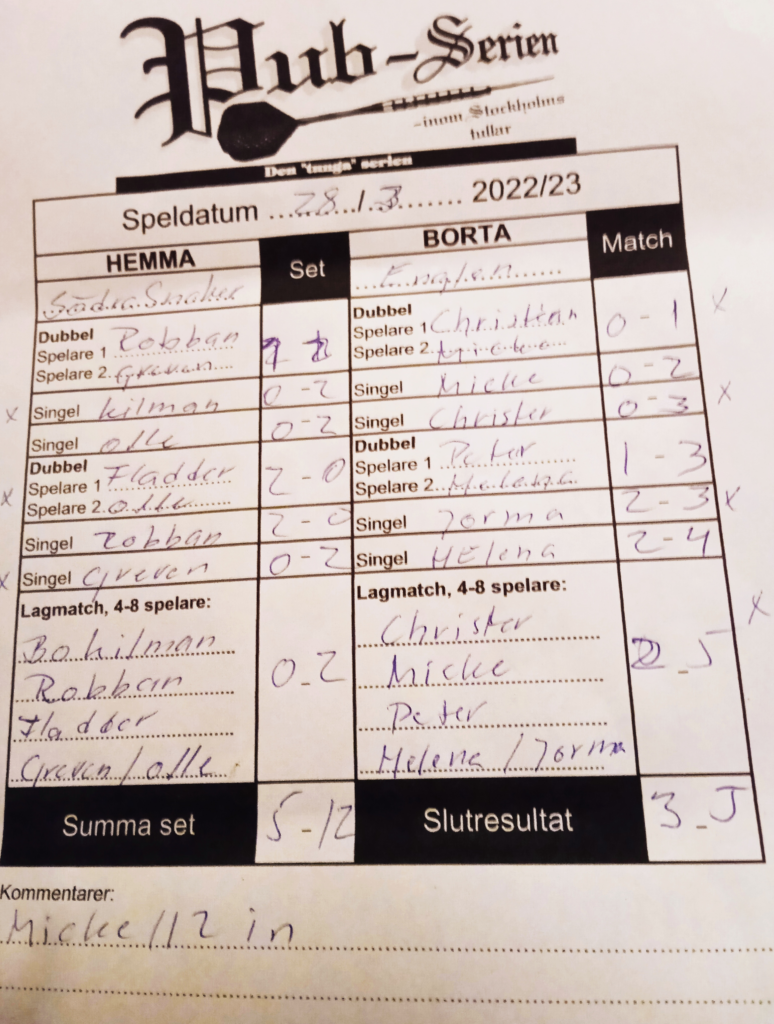 Pub-Serien
-inom Stockholms
tullar
Den "tunga" serien
Speldatum 28/3 2022/23
HEMMA Set BORTA Match
Södra
Dubbel
Spelare 1 Robban
Spelare 2 Greven
Dubbel
Spelare 1 Christian
Spelare 2
0 - 1 x
x Singel Kilman 0 - 2 Singel Micke 0 - 2
Singel Olle 0 - 2 Singel Christer 0 - 3 x
Dubbel
x Spelare 1 Fladder
Spelare 2 Olle
2 - 0
Dubbel
Spelare 1 Peter
Spelare 2 Helena
1 - 3
Singel Robban 2 - 0 Singel Jorma 2 - 3 x
x Singel Greven 0 - 2 Singel HElena 2 - 4
Lagmatch, 4-8 spelare:
Bo kilman
Robban
Fladder
Greven/olle
0 - 2
Lagmatch, 4-8 spelare:
Christer
Micke
Peter
Helena/Jorma
2 - 5 x
Summa set 5 - 12 Slutresultat 3 - 5
Kommentarer:
Micke 112 in